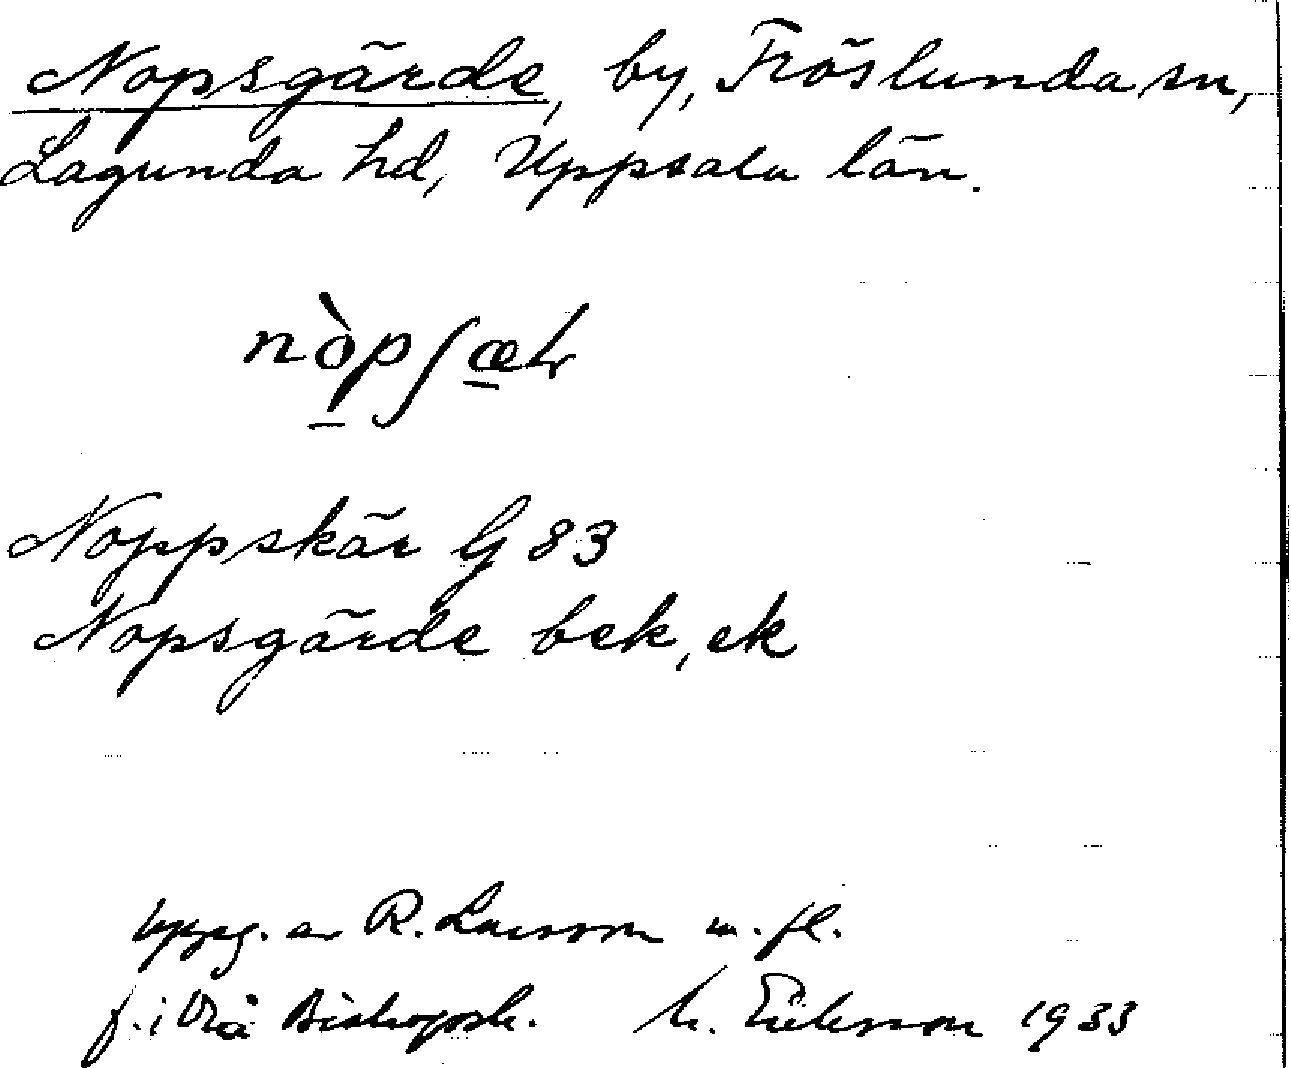 Nopsgärde, by, Fröslunda sn,
Lagunda hd, Uppsala län.
nòpʃær
Noppskär G 83
Nopsgärde bek, ek
Uppg. av R. Larsson m. fl.
f. i Vrå Biskopsk. M. Eriksson 1933